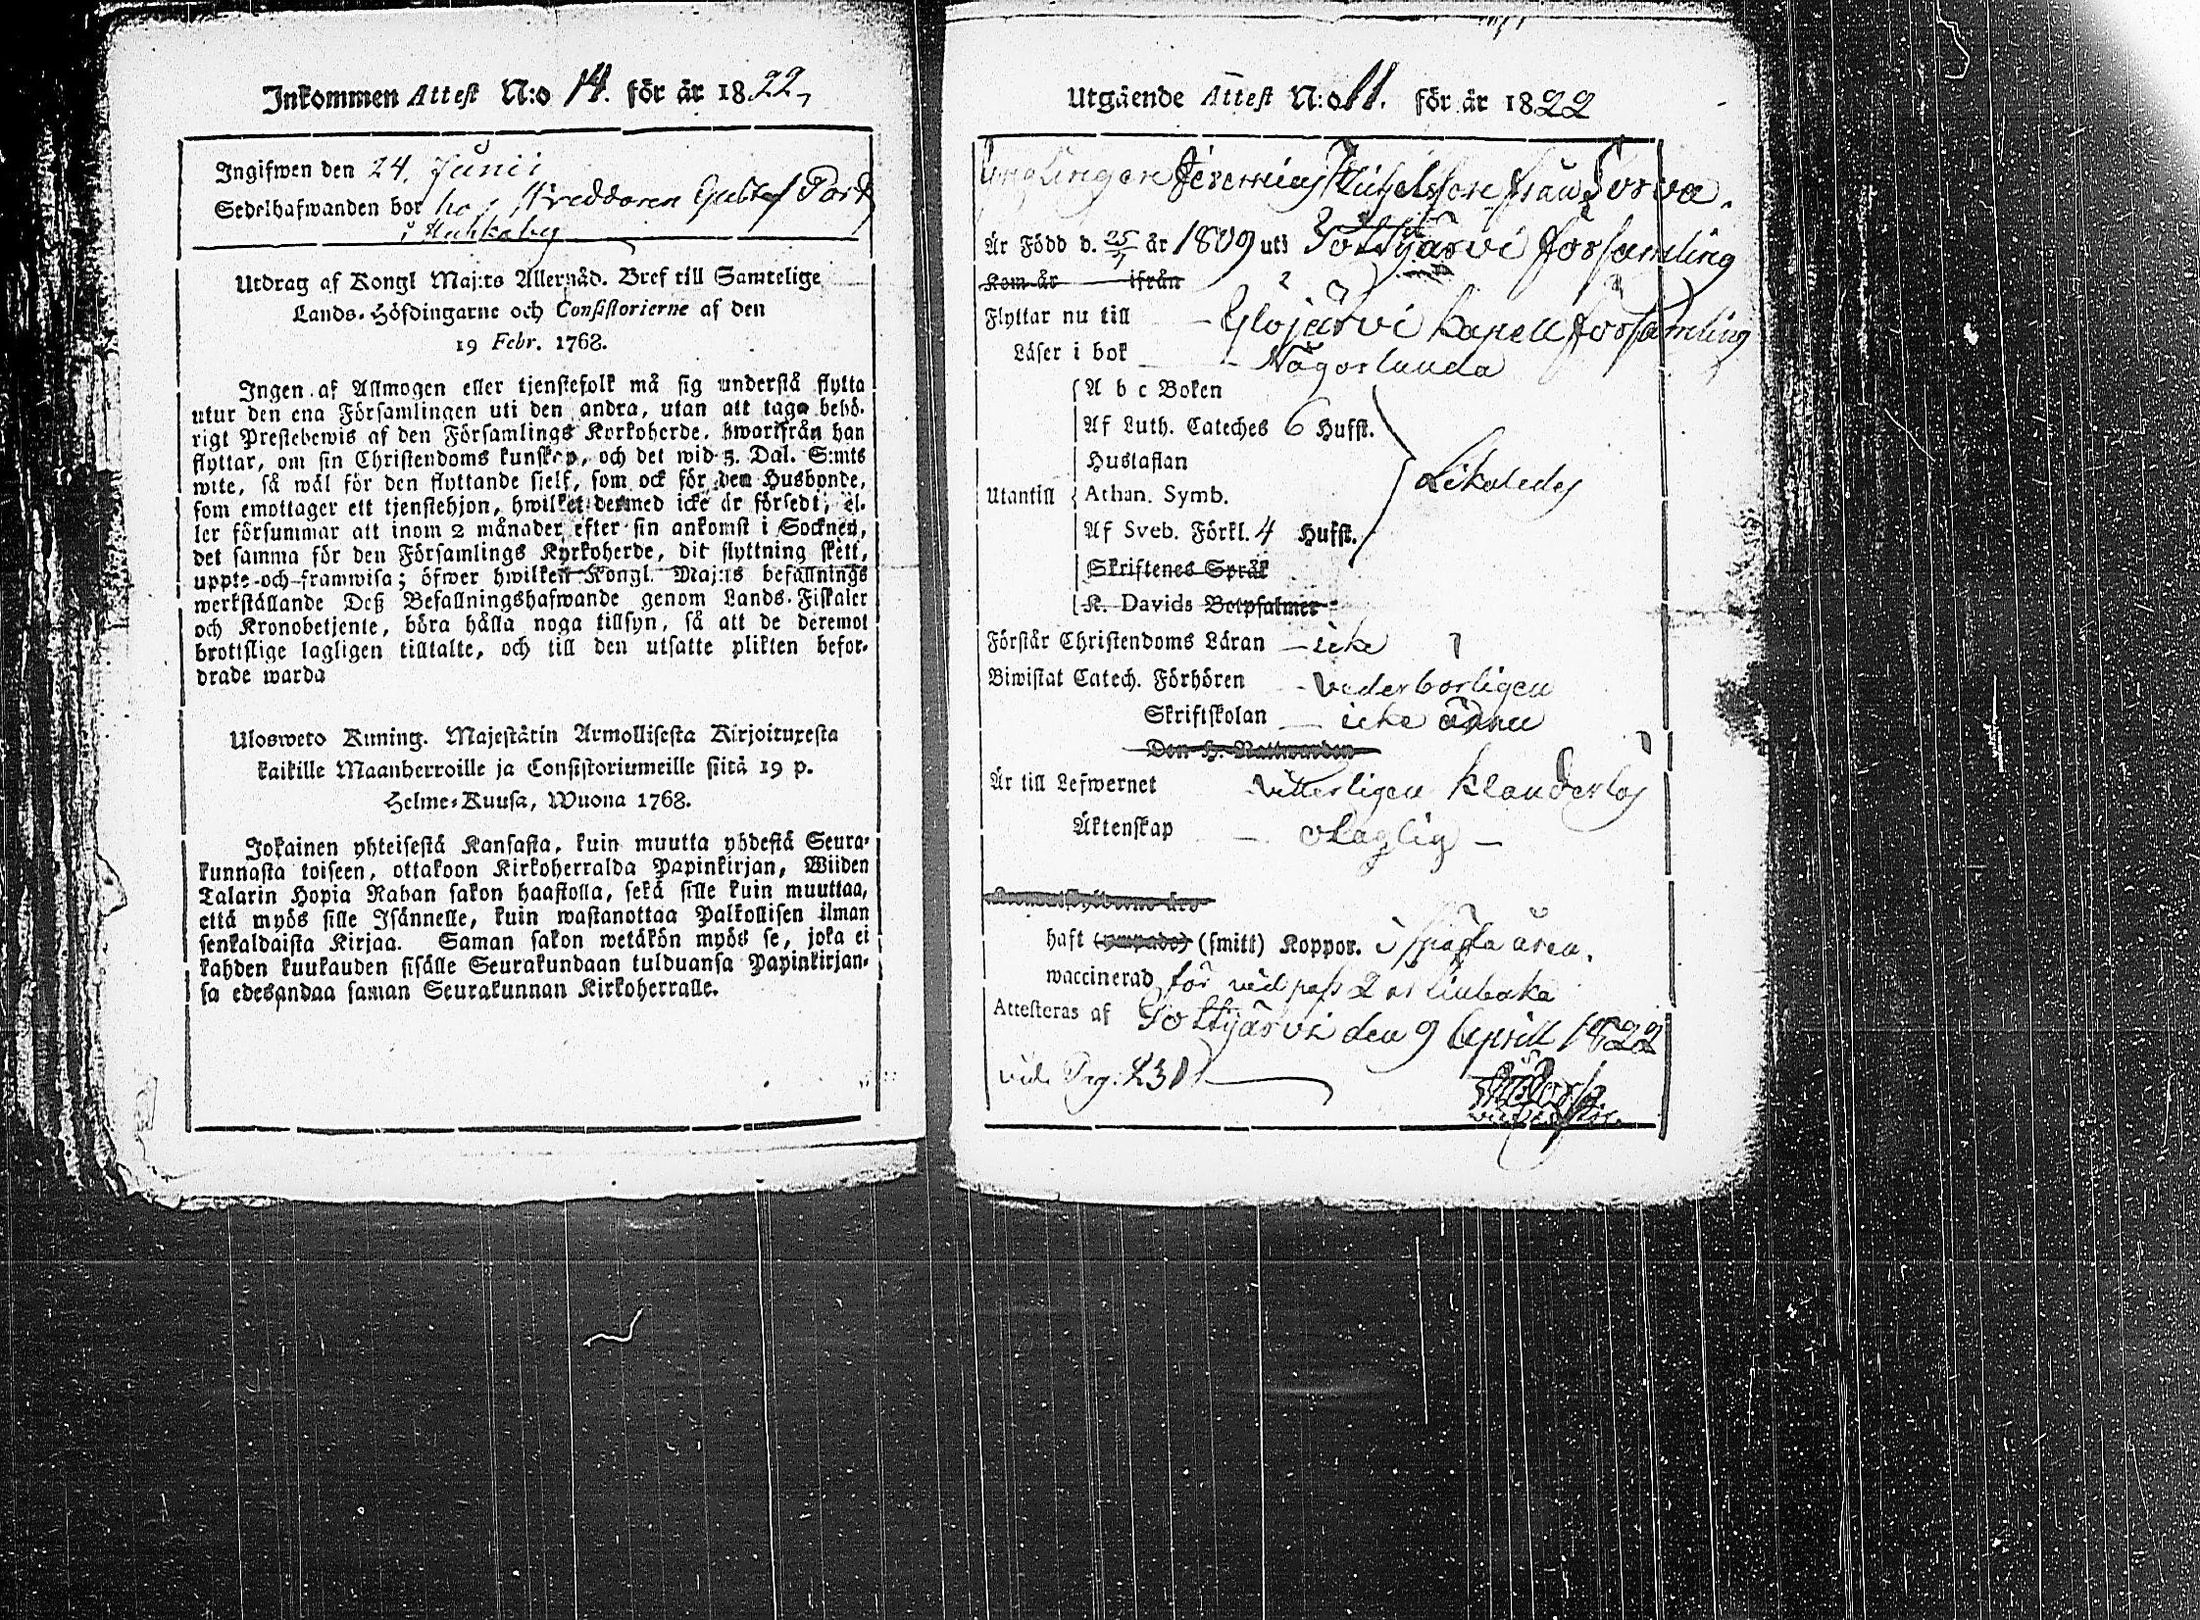 Inkommen Attest N:o 14. för år 1822,
Ingifwen den 24. Junii
Sedelhafwanden bor hos Gustaf
i
Utdrag af Kongl Maj:ts Allernåd. Bref till Samtelige
Lands-Höfdingarne och Consistorierne af den
19 Febr. 1768.
Ingen af Allmogen eller tjenstefolk må sig understå flytta
utur den ena Församlingen uti den andra, utan att taga behö-
rigt Prestebewis af den Församlings Kyrkoherde, hwarifrån han
flyttar, om sin Christendoms kunskap, och det wid 5. Dal. S:mts
wite, så wäl för den flyttande sielf, som ock för den Husbonde,
som emottager ett tjenstehjon, hwilket dermed icke är försedt, el-
ler försummar att inom 2 månader efter sin ankomst i Socknen,
det samma för den Församlings Kyrkoherde, dit flyttning skett,
uppte och framwisa; öfwer hwilken Kongl. Maj:ts befallnings
werkställande Deß Befallningshafwande genom Lands-Fiskaler
och Kronobetjente, böra hålla noga tillsyn, så att de deremot
brottslige lagligen tilltalte, och till den utsatte plikten befor-
drade warda
Ulosweto Kuning. Majestätin Armollisesta Kirjoituxesta
kaikille Maanherroille ja Consistoriumeille siitä 19 p.
Helme-Kuusa, Wuona 1768.
Jokainen yhteisestä Kansasta, kuin muutta yhdestä Seura-
kunnasta toiseen, ottakoon Kirkoherralda Papinkirjan, Wiiden
Talarin Hopia Rahan sakon haastolla, sekä sille kuin muuttaa,
että myös sille Isännelle, kuin wastanottaa Palkollisen ilman
senkaldaista Kirjaa. Saman sakon wetäkön myös se, joka ei
kahden kuukauden sisälle Seurakundaan tulduansa Papinkirjan-
sa edesandaa saman Seurakunnan Kirkoherralle.
Utgående Attest N:o 11. för år 1822
Ynglingen Jeremias från
Är Född d. 25/1 år 1809 uti Pöltjärvi församling
Kom år ifrån
Flyttar nu till Ylöjärvi kapell församling
Läser i bok Någorlunda
A b c Boken
Af Luth. Cateches 6 Hufst.
Hustaflan
Utantill Athan. Symb. Likaledes
Af Sveb. Förkl. 4 Hufst.
Skriftenes Språk
K. Davids Botpsalmer
Förstår Christendoms Läran icke
Biwistat Catech. Förhören vederbörligen
Skriftskolan icke ännu
Den H. Nattwarden
Är till Lefwernet vitterligen klanderlös
Äktenskap olaglig
haft (ympade) (smitt) Koppor. i späda åren.
waccinerad för vid pass 2 år tillbaka
Attesteras af Pöltjärvi den 9 April 1822
vide Pag: 231